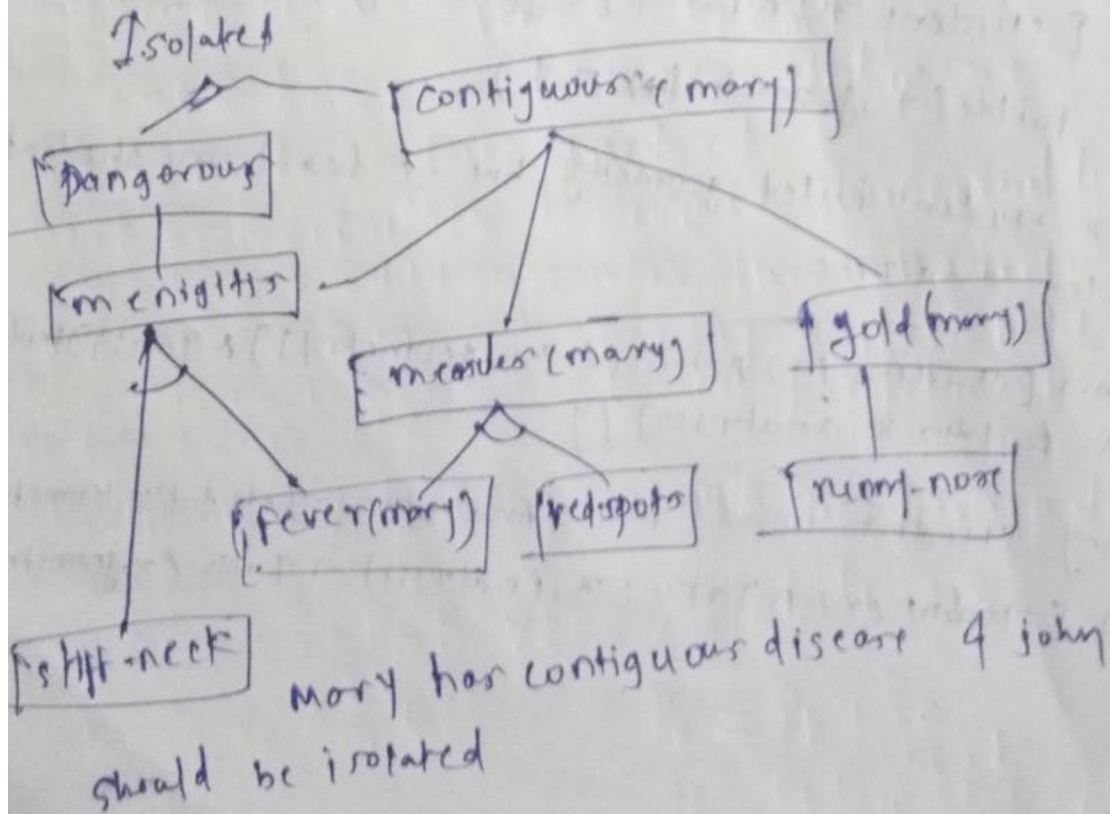 Isolated
contiguous (mary)
Dangerous
menigitis
measles (mary)
gold (mary)
fever (mary)
red-spots
runny-nose
stiff-neck
mary has contiguous disease & john
should be isolated